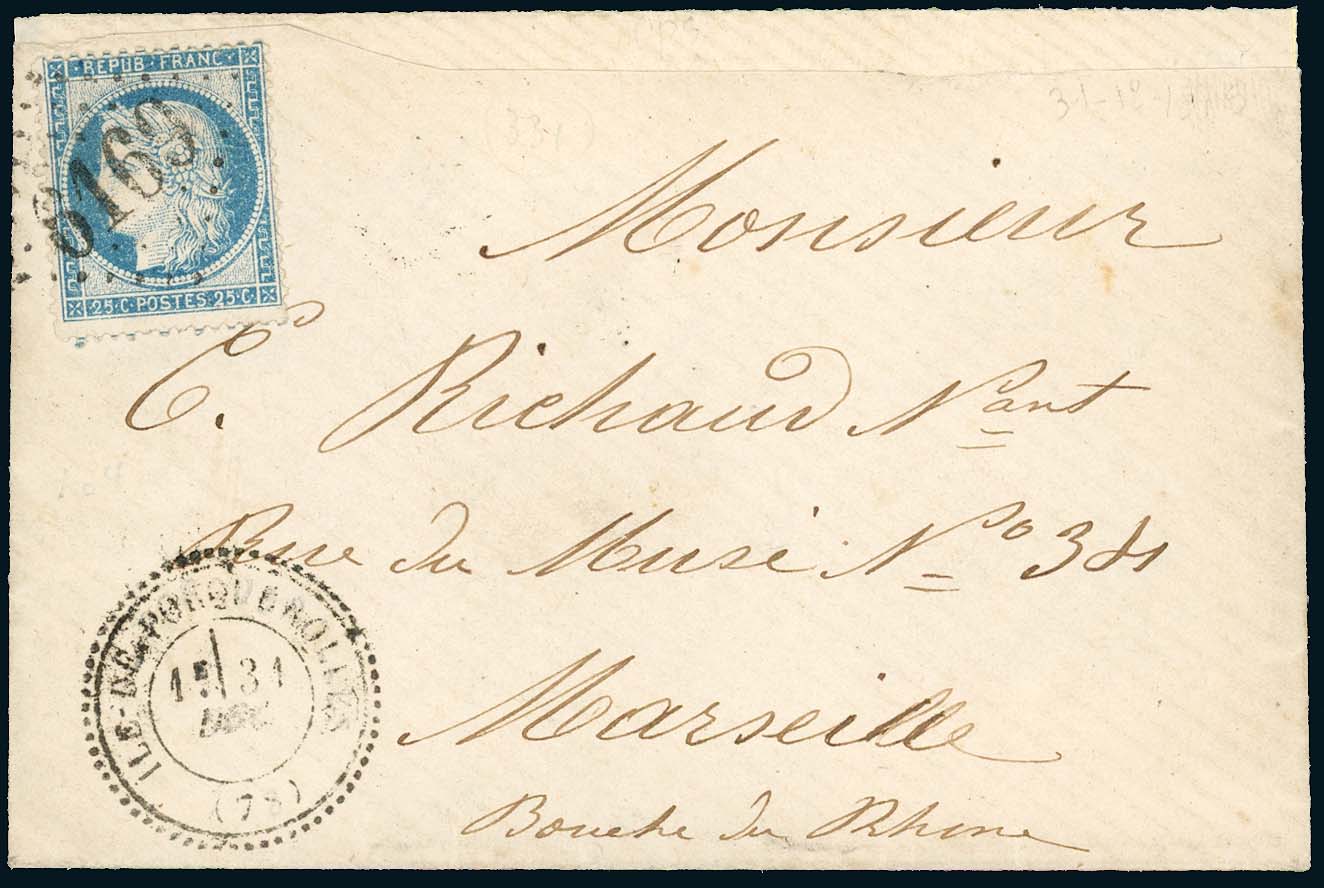 REPUB FRANC
6169
25 C POSTES 25 C
Monsieur
E. Richaud Nant
Rue du Musé No 34
Marseille
Bouche du Rhone
ILE-DE-PORQUEROLLES
31
DEC